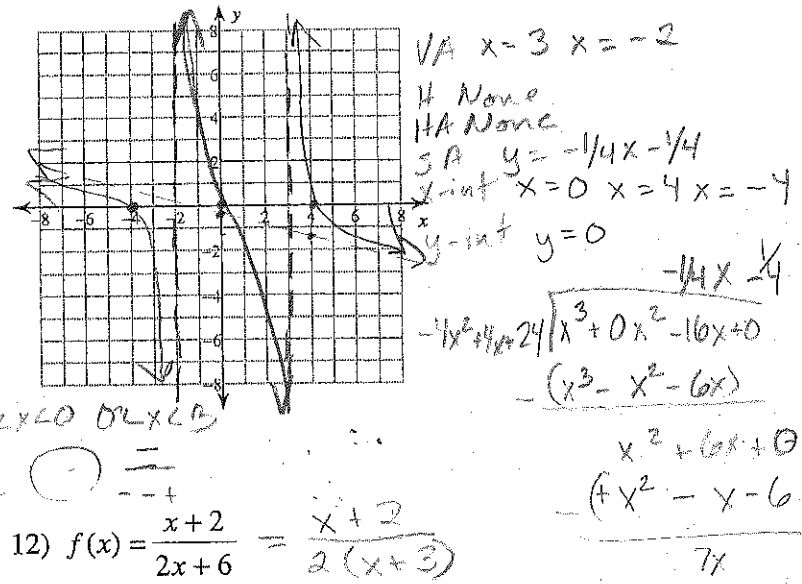 y
8
6
4
2
-8 -6 -4 -2 2 4 6 8 x
-2
-4
-6
-8
VA x = 3 x = -2
H None
HA None
SA y = -1/4x - 1/4
x-int x = 0 x = 4 x = -4
y-int y = 0
-1/4x -1/4
-4x² + 4x + 24 x³ + 0x² - 16x + 0
- (x³ - x² - 6x)
x² + 6x + 0
- (+x² - x - 6
7x
x<0 0<x<3
- - +
12) f(x) = x + 2 / 2x + 6 = x + 2 / 2(x + 3)